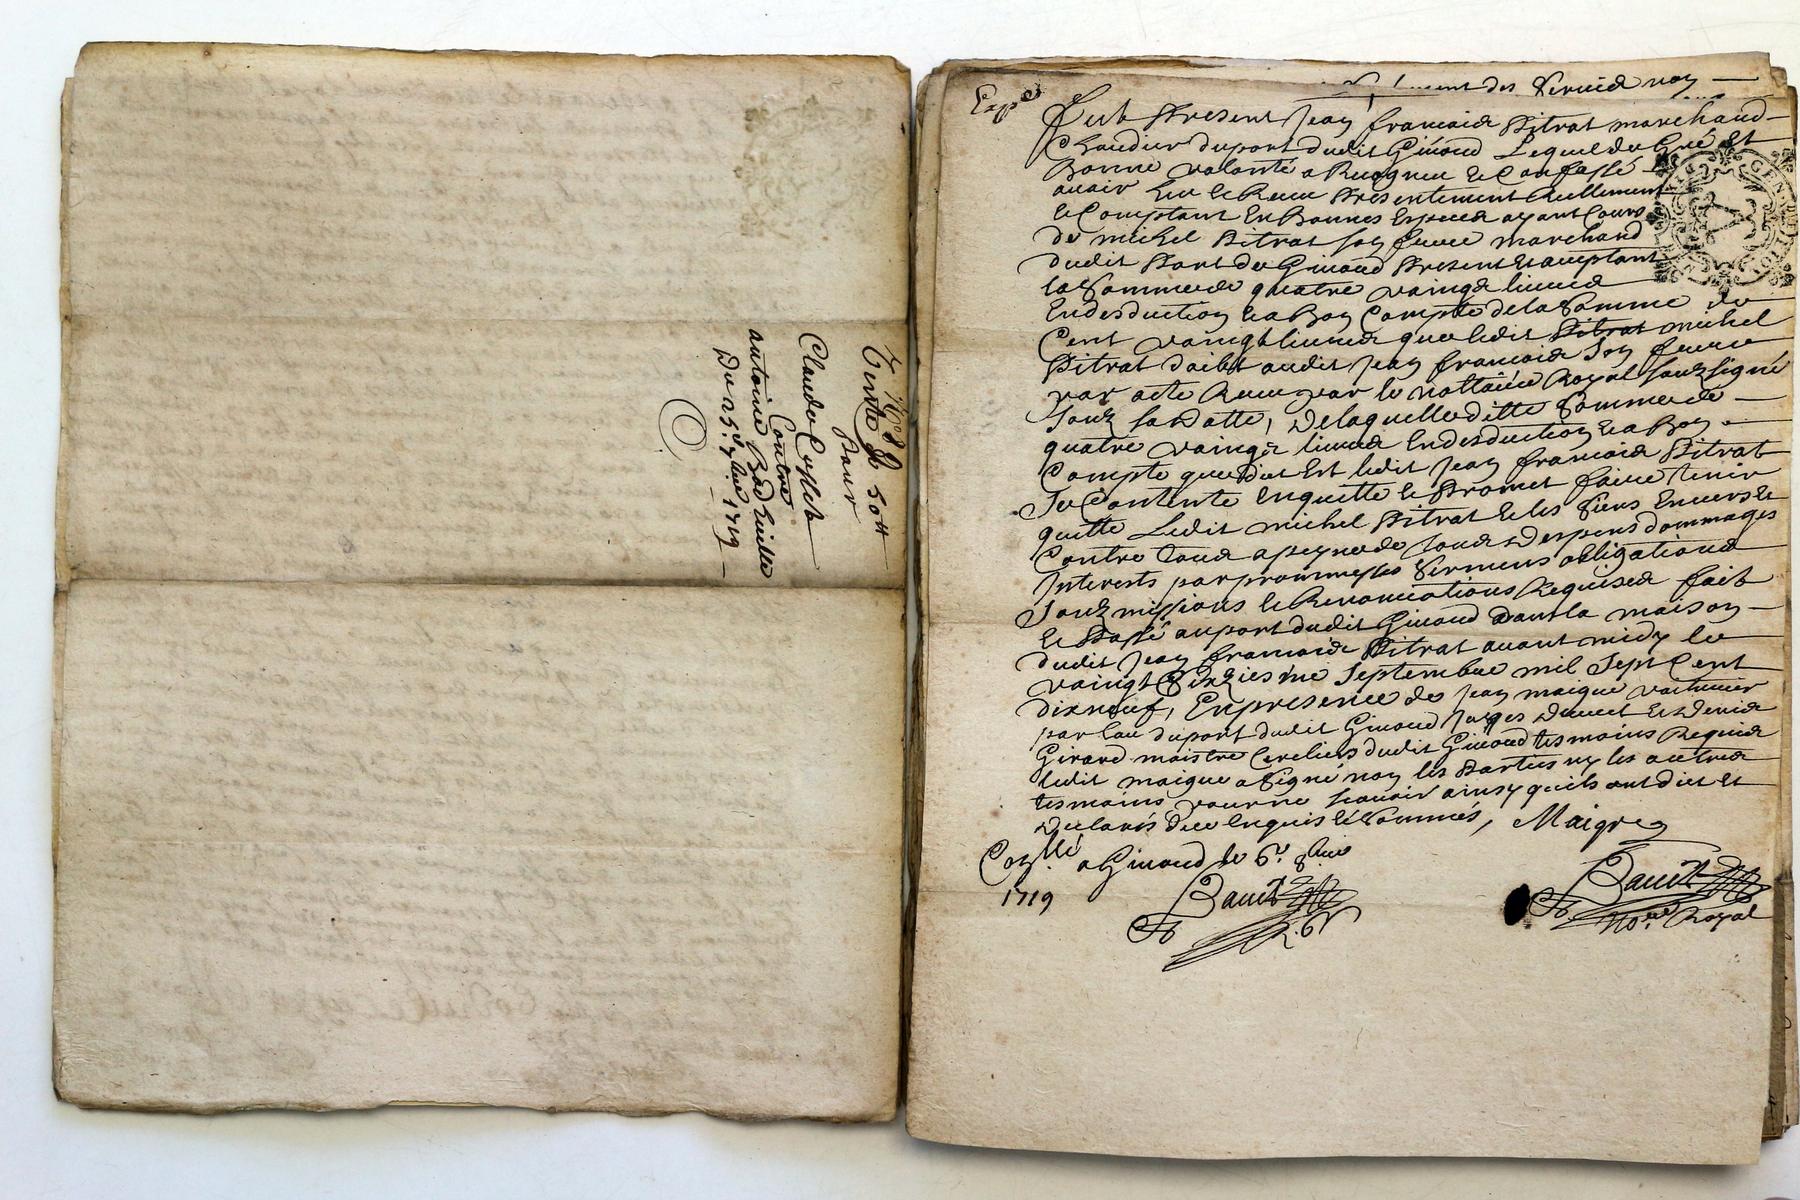 Vente de 50ᵗᵗ
Pour
Claude
Contre
antoine
Du 25ᵉ 7bre 1719
Expᵉ
des
Fut Present Jean francois Pitrat marchand
duport dudit Givord Lequel de Gré Et
Bonne volonté a Recogneu & Confessé
avoir Eu & Receu Presentement Reellement
& Comptant En Bonnes Especes ayant Cours
de michel Pitrat son frere marchand
dudit Port de Givord Present Et acceptant
la Somme de quatre vaingt livres
En desduction & a Bon Compte de la Somme de
Cent vaingt livres que ledit Pitrat michel
Pitrat doibt audit Jean francois son frere
par acte Receu par le nottaire Royal soubzsigné
soubz sa Datte, De laquelle ditte Somme de
quatre vaingt livres En desduction & a Bon
Compte que dit Est ledit Jean francois Pitrat
Se Contente Enquitte & Promet faire tenir
quitte Ledit michel Pitrat & les Siens Envers Et
Contre tous a peyne de tous Despens dommages
Interests par prommesses Sermens obligations
Soubzmissions & Renonciations Requises fait
& Passé au port dudit Givord Dans la maison
dudit Jean francois Pitrat avant midy le
vaingt Septembre mil Sept Cent
dixneuf, En presence de Jean maigre voiturier
par Eau du port dudit Givord Et Denis
Girard maistre dudit Givord tesmoins Requis
ledit maigre a Signé non les Parties ny les autres
tesmoins pour ne scavoir ainsy quils ont dict Et
Declarés de ce Enquis & Sommés, Maigre
Conllé a Givord le 6ᵉ 8bre
1719
Noʳᵉ Royal